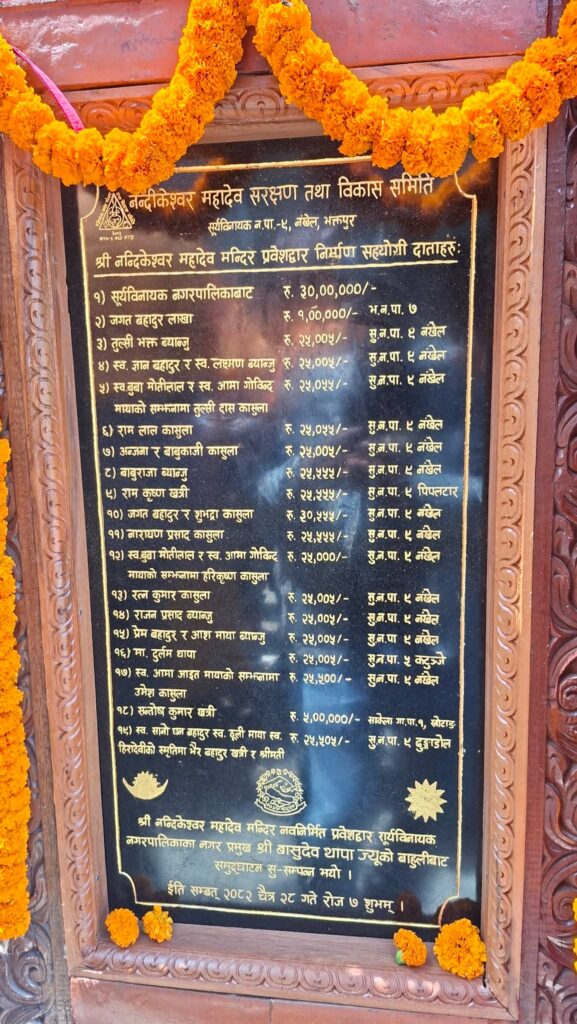 नन्दीकेश्वर महादेव सरक्षण तथा विकास समिति
सूर्यविनायक न.पा.-९, नंखेल, भक्तपुर
श्री नन्दिकेश्वर महादेव मन्दिर प्रवेशद्वार निर्माण सहयोगी दाताहरुः
१) सूर्यविनायक नगरपालिकाबाट रु. ३०,००,०००/-
२) जगत बहादुर लाखा रु. १,००,०००/- भ.न.पा. ७
३) तुल्सी भक्त ब्याञ्जु रु. २५,००५/- सु.न.पा. ९ नंखेल
४) स्व. ज्ञान बहादुर र स्व. लक्ष्मण ब्याञ्जु रु. २५,००५/- सु.न.पा. ९ नंखेल
५) स्व.बुबा मोतीलाल र स्व. आमा गोविन्द रु. २५,०५५/- सु.न.पा. ९ नंखेल
मायाको सम्भनामा तुल्सी दास कासुला
६) राम लाल कासुला रु. २५,०५५/- सु.न.पा. ९ नंखेल
७) अन्जना र बाबुकाजी कासुला रु. २५,००५/- सु.न.पा. ९ नंखेल
८) बाबुराजा ब्याञ्जु रु. २५,५५५/- सु.न.पा. ९ नंखेल
९) राम कृष्ण खत्री रु. २५,५५५/- सु.न.पा. ९ पिपलटार
१०) जगत बहादुर र शुभद्रा कासुला रु. ३०,५५५/- सु.न.पा. ९ नंखेल
११) नारायण प्रसाद कासुला रु. २५,५५५/- सु.न.पा. ९ नंखेल
१२) स्व.बुबा मोतीलाल र स्व. आमा गोविन्द रु. २५,०००/- सु.न.पा. ९ नंखेल
मायाको सम्भनामा हरिकृष्ण कासुला
१३) रत्न कुमार कासुला रु. २५,००५/- सु.न.पा. ९ नंखेल
१४) राजन प्रसाद ब्याञ्जु रु. २५,००५/- सु.न.पा. ९ नंखेल
१५) प्रेम बहादुर र आश माया ब्याञ्जु रु. २५,००५/- सु.न.पा. ९ नंखेल
१६) मा. दुर्लभ थापा रु. २५,००५/- सु.न.पा. ५ कटुञ्जे
१७) स्व. आमा आइत मायाको सम्भनामा रु. २५,५००/- सु.न.पा. ९ नंखेल
उमेश कासुला
१८) सन्तोष कुमार खत्री रु. ५,००,०००/- साकेला गा.पा.१, खोटाङ
१९) स्व. सानो धन बहादुर स्व. ठूली माया स्व. रु. २५,५०५/- सु.न.पा. ९ दुङ्गाडोल
हिरादेवीको स्मृतिमा भैर बहादुर खत्री र श्रीमती
श्री नन्दिकेश्वर महादेव मन्दिर नवनिर्मित प्रवेशद्वार सूर्यविनायक
नगरपालिकाका नगर प्रमुख श्री बासुदेव थापा ज्यूको बाहुलीबाट
समुद्घाटन सु-सम्पन्न भयो ।
ईति सम्बत् २०८२ चैत्र २८ गते रोज ७ शुभम् ।